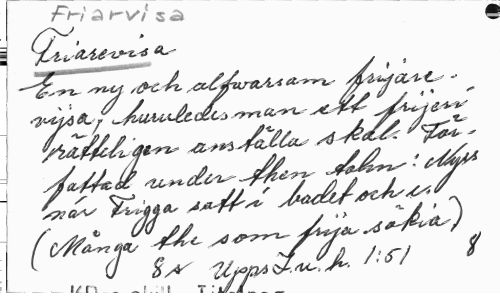 Friarvisa
Friarevisa
En ny och alfwarsam frijare-
vijsa, huruledes man ett frijeri
rätteligen anställa skal. För-
fattad under then tohn: Nyss
när Frigga satt i badet och c.
(Många the som frija sökia)
8 s Upps I. u. h. 1:51 8